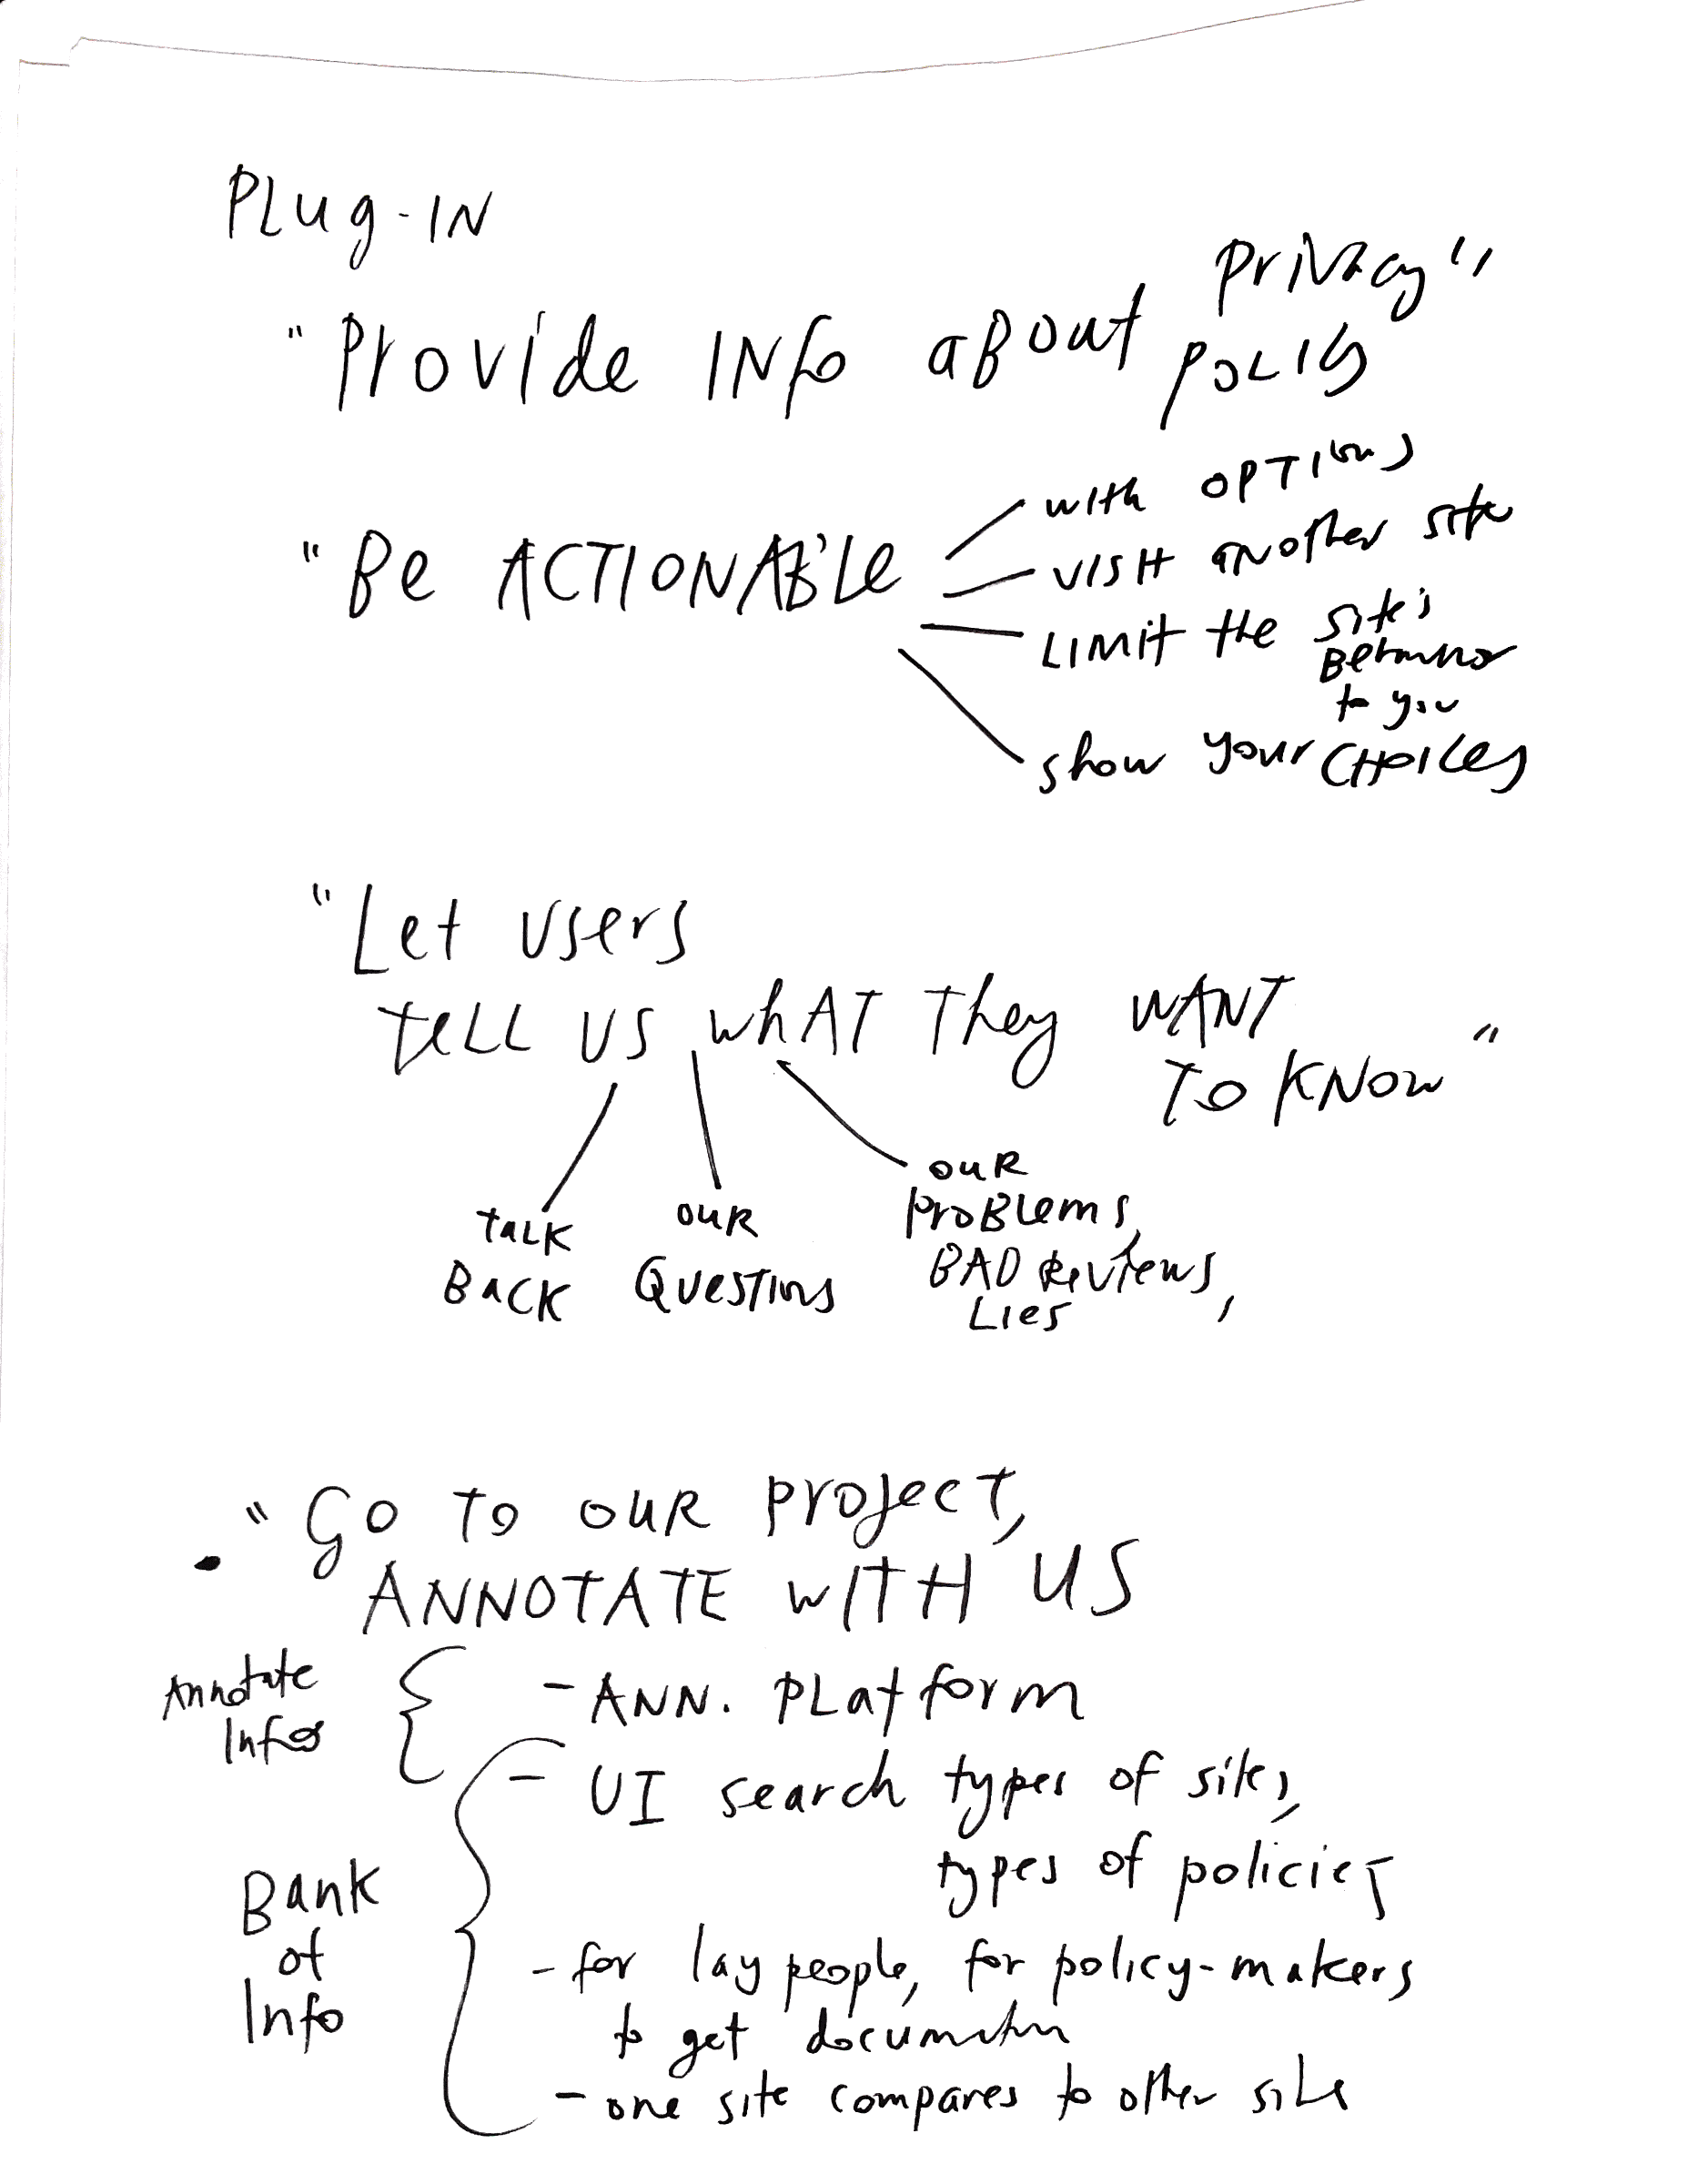 PLug-IN
privacy"
"Provide INfo aBout policy
"Be ACTIONABLE
with OPTIONS
VISIT another site
LIMIT the site's
Behavior
to you
show your CHOICES
"Let users
teLL us whAT They WANT
TO KNOW"
TALK
BACK
OUR
QUESTIONS
OUR
PROBLEMS,
BAD REVIEWS,
LIES
"Go TO OUR project,
ANNOTATE WITH US
Annotate
Info
- ANN. PLatform
- UI search types of sites,
types of policies
Bank
of
Info
- for lay people, for policy-makers
to get documentation
- one site compares to other site